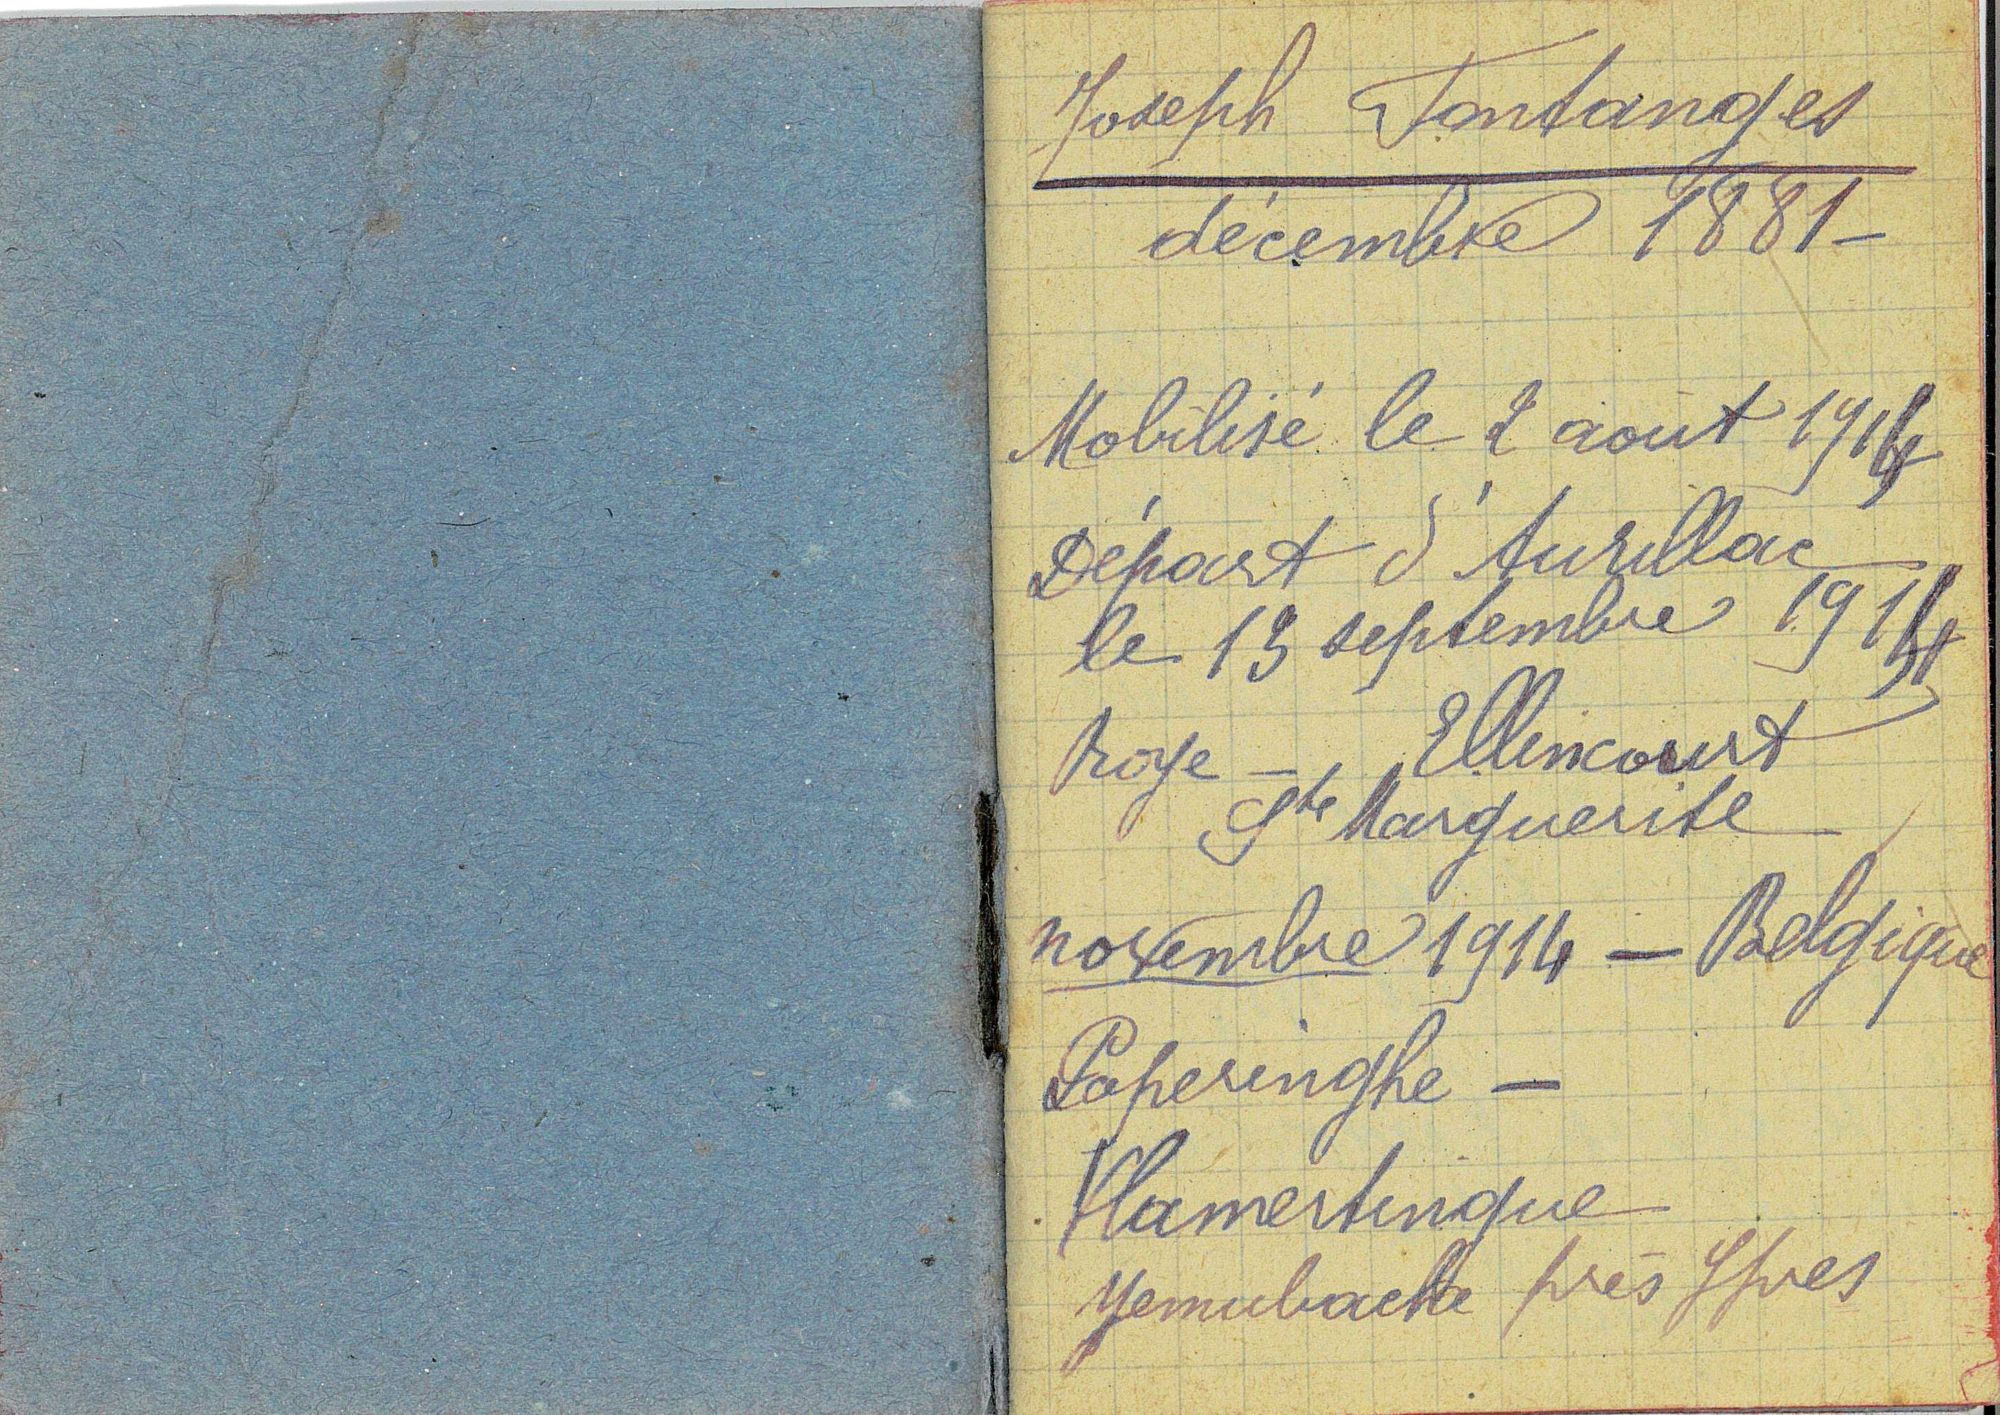 Joseph Fontanges
décembre 1881 -
Mobilisé le 2 août 1914
Départ d'Aurillac
le 13 septembre 1914
Roye - Ellincourt
Ste Marguerite
novembre 1914 - Belgique
Poperinghe -
Vlamertingue
près Ypres